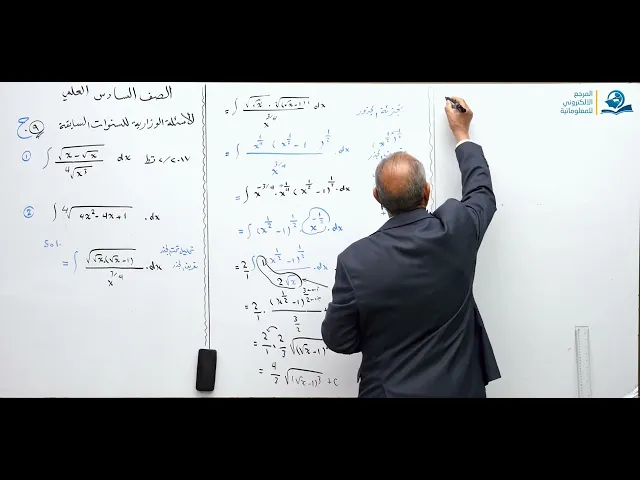 الصف السادس العلمي
الأسئلة الوزارية للسنوات السابقة
ج ٩
① ∫ √(x − √x) / ⁴√x³ dx
② ∫ ⁴√(4x² − 4x + 1) . dx
Sol.
= ∫ √(√x(√x−1)) / x^(3/4) . dx
= ∫ √√x · √(√x−1) / x^(3/4) dx
= ∫ x^(1/4) (x^(1/2) − 1)^(1/2) / x^(3/4) . dx
= ∫ x^(−3/4) · x^(1/4) (x^(1/2) − 1)^(1/2) . dx
= ∫ (x^(1/2) − 1)^(1/2) x^(−1/2) . dx
= 2/1 ∫ (x^(1/2) − 1)^(1/2) / 2√x . dx
= 2/1 . (x^(1/2) − 1)^(3/2) / (3/2)
= 2/1 . 2/3 √(√x−1)³
= 4/3 √(√x−1)³ + C
المرجع
الالكتروني
للمعلوماتية